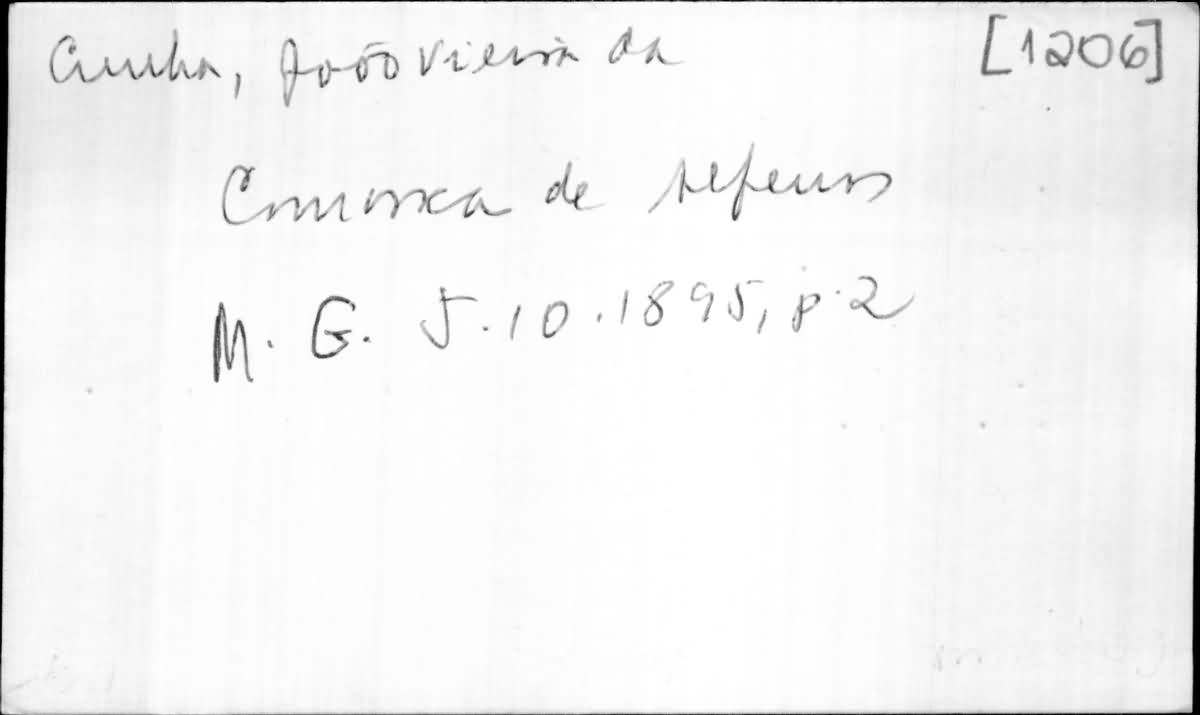 Cunha, João Vieira da [1206]
Comarca de
M. G. 5.10.1895, p.2